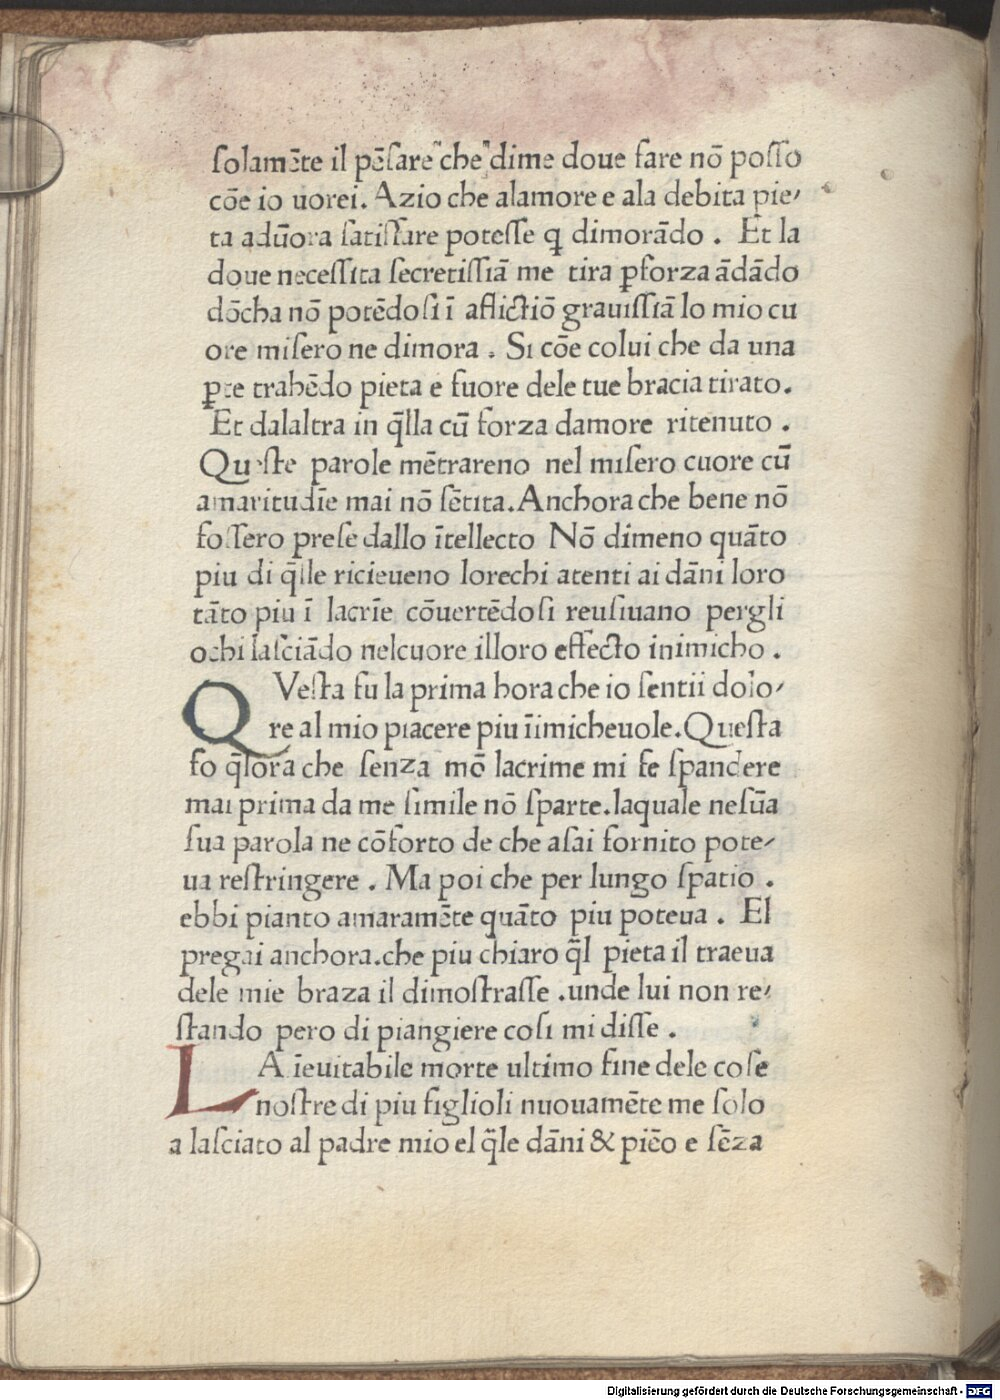 solamēte il pēsare che dime doue fare nō posso
cōe io uorei. Azio che alamore e ala debita pie-
ta adūora satisfare potesse q dimorādo . Et la
doue necessita secretissiā me tira ꝑforza ādādo
dōcha nō potēdosi ī aflictiō grauissiā lo mio cu
ore misero ne dimora . Si cōe colui che da una
ꝑte trahēdo pieta e fuore dele tue bracia tirato.
Et dalaltra in q̄lla cū forza damore ritenuto .
Queste parole mētrareno nel misero cuore cū
amaritudīe mai nō sētita. Anchora che bene nō
fossero prese dallo ītellecto Nō dimeno quāto
piu di q̄lle ricieueno lorechi atenti ai dāni loro
tāto piu ī lacrīe cōuertēdosi reusiuano pergli
ochi lasciādo nelcuore illoro effecto inimicho .
QVesta fu la prima hora che io sentii dolo-
re al mio piacere piu īimicheuole. Questa
fo q̄lora che senza mō lacrime mi fe spandere
mai prima da me simile nō sparte. laquale nesūa
sua parola ne cōforto de che asai fornito pote-
ua restringere . Ma poi che per lungo spatio .
ebbi pianto amaramēte quāto piu poteua . El
pregai anchora. che piu chiaro q̄l pieta il traeua
dele mie braza il dimostrasse . unde lui non re-
stando pero di piangiere cosi mi disse .
LA īeuitabile morte ultimo fine dele cose
nostre di piu figlioli nuouamēte me solo
a lasciato al padre mio el q̄le dāni & piēo e sēza
Digitalisierung gefördert durch die Deutsche Forschungsgemeinschaft - DFG